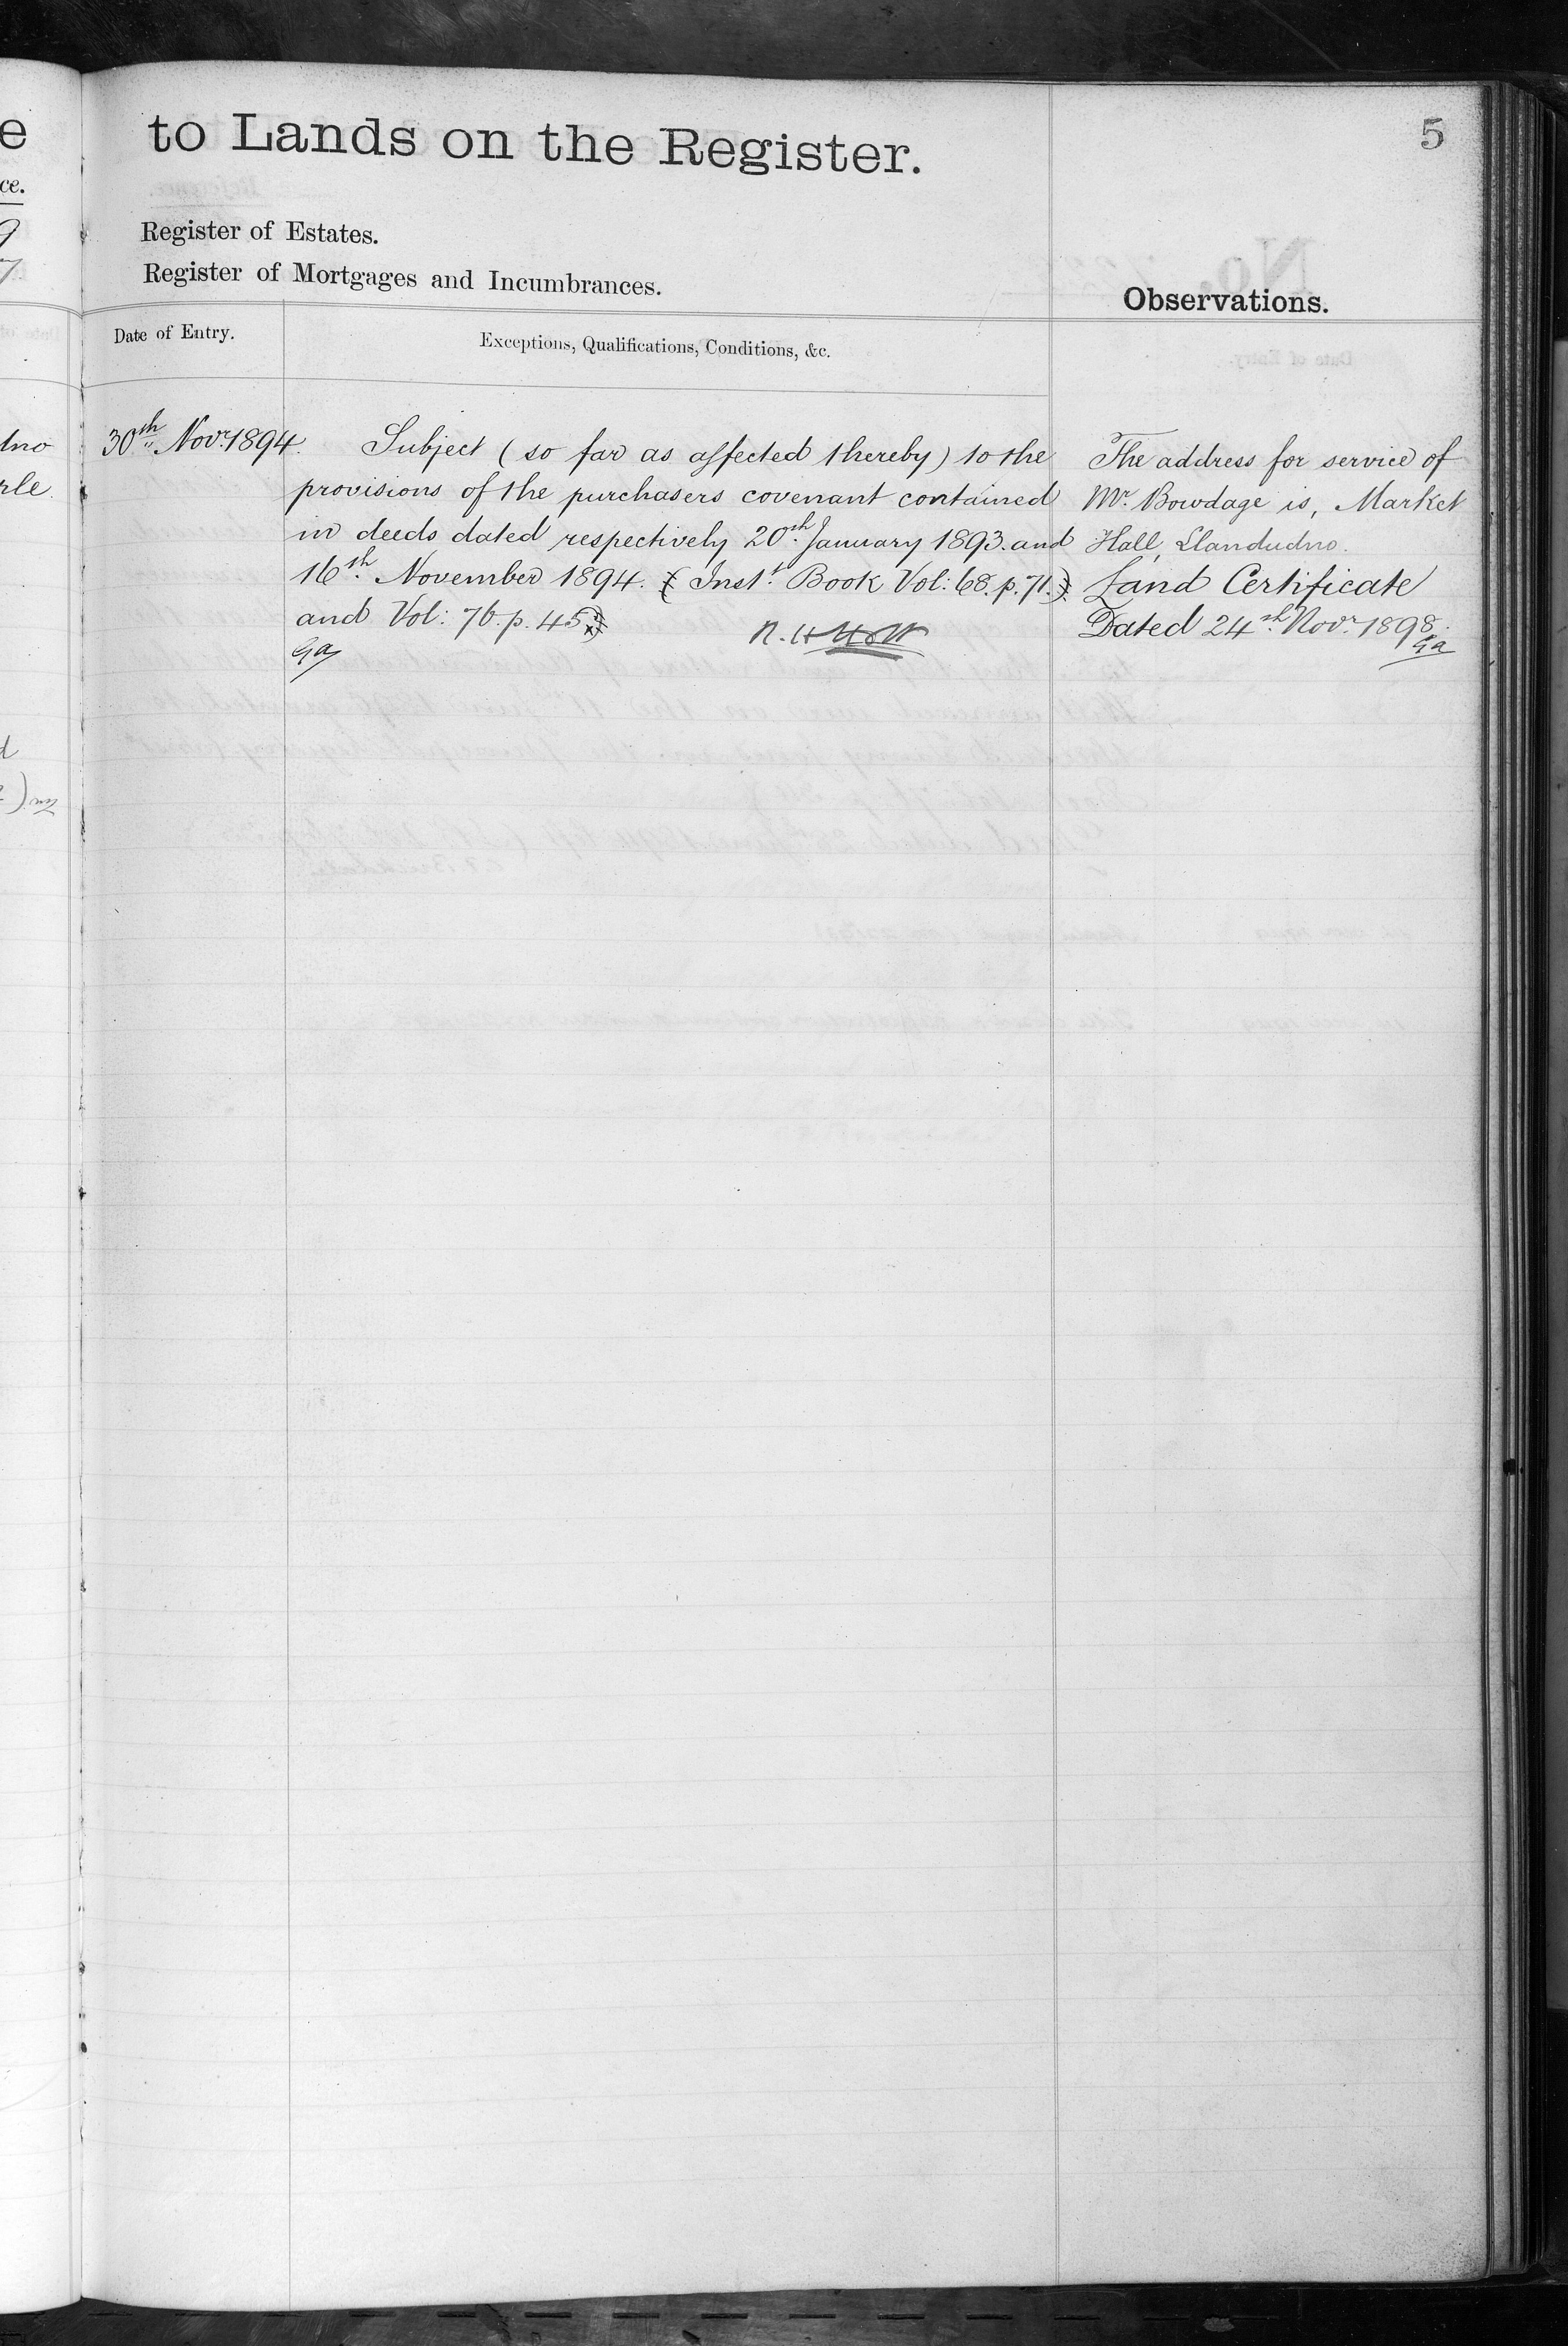 e
ce.
to Lands on the Register.
5
Register of Estates.
Register of Mortgages and Incumbrances.
Observations.
Date of Entry.
Exceptions, Qualifications, Conditions, &c.
30th Novr 1894.
Subject (so far as affected thereby) to the
provisions of the purchasers covenant contained
in deeds dated respectively 20th January 1893. and
16th November 1894. (Inst. Book Vol: 68. p. 71.)
and Vol: 76. p. 45
Ga
The address for service of
Mr. Bowdage is, Market
Hall, Llandudno.
Land Certificate
Dated 24th Novr. 1898.
Ga